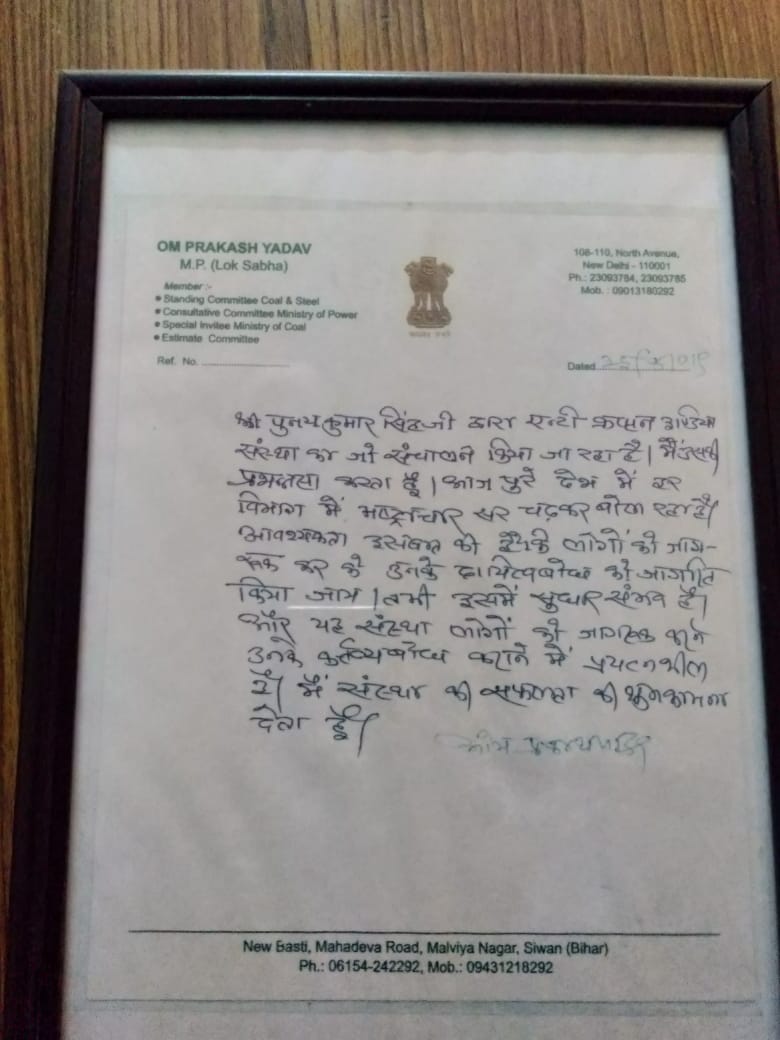 OM PRAKASH YADAV
M.P. (Lok Sabha)
Member :-
• Standing Committee Coal & Steel
• Consultative Committee Ministry of Power
• Special Invitee Ministry of Coal
• Estimate Committee
Ref. No. ........................
108-110, North Avenue,
New Delhi - 110001
Ph.: 23093784, 23093785
Mob. : 09013180292
सत्यमेव जयते
Dated
श्री पुनय कुमार सिंह जी द्वारा एन्टी क्रप्सन इण्डिया
संस्था का जो संचालन किया जा रहा है। मैं इसकी
करता हूँ। आज पुरे देश में हर
विभाग में भष्ट्राचार सर चढ़कर बोल रहा है।
आवश्यकता इसबात की है लोगों को जाग-
रूक कर के उनके दायित्वबोध को
किया जाय। तभी इसमें सुधार संभव है।
और यह संस्था लोगों को जागरूक करने
उनके कर्तव्यबोध कराने में प्रयत्नशील
है। मैं संस्था की सफलता की शुभकामना
देता हूँ।
New Basti, Mahadeva Road, Malviya Nagar, Siwan (Bihar)
Ph.: 06154-242292, Mob.: 09431218292